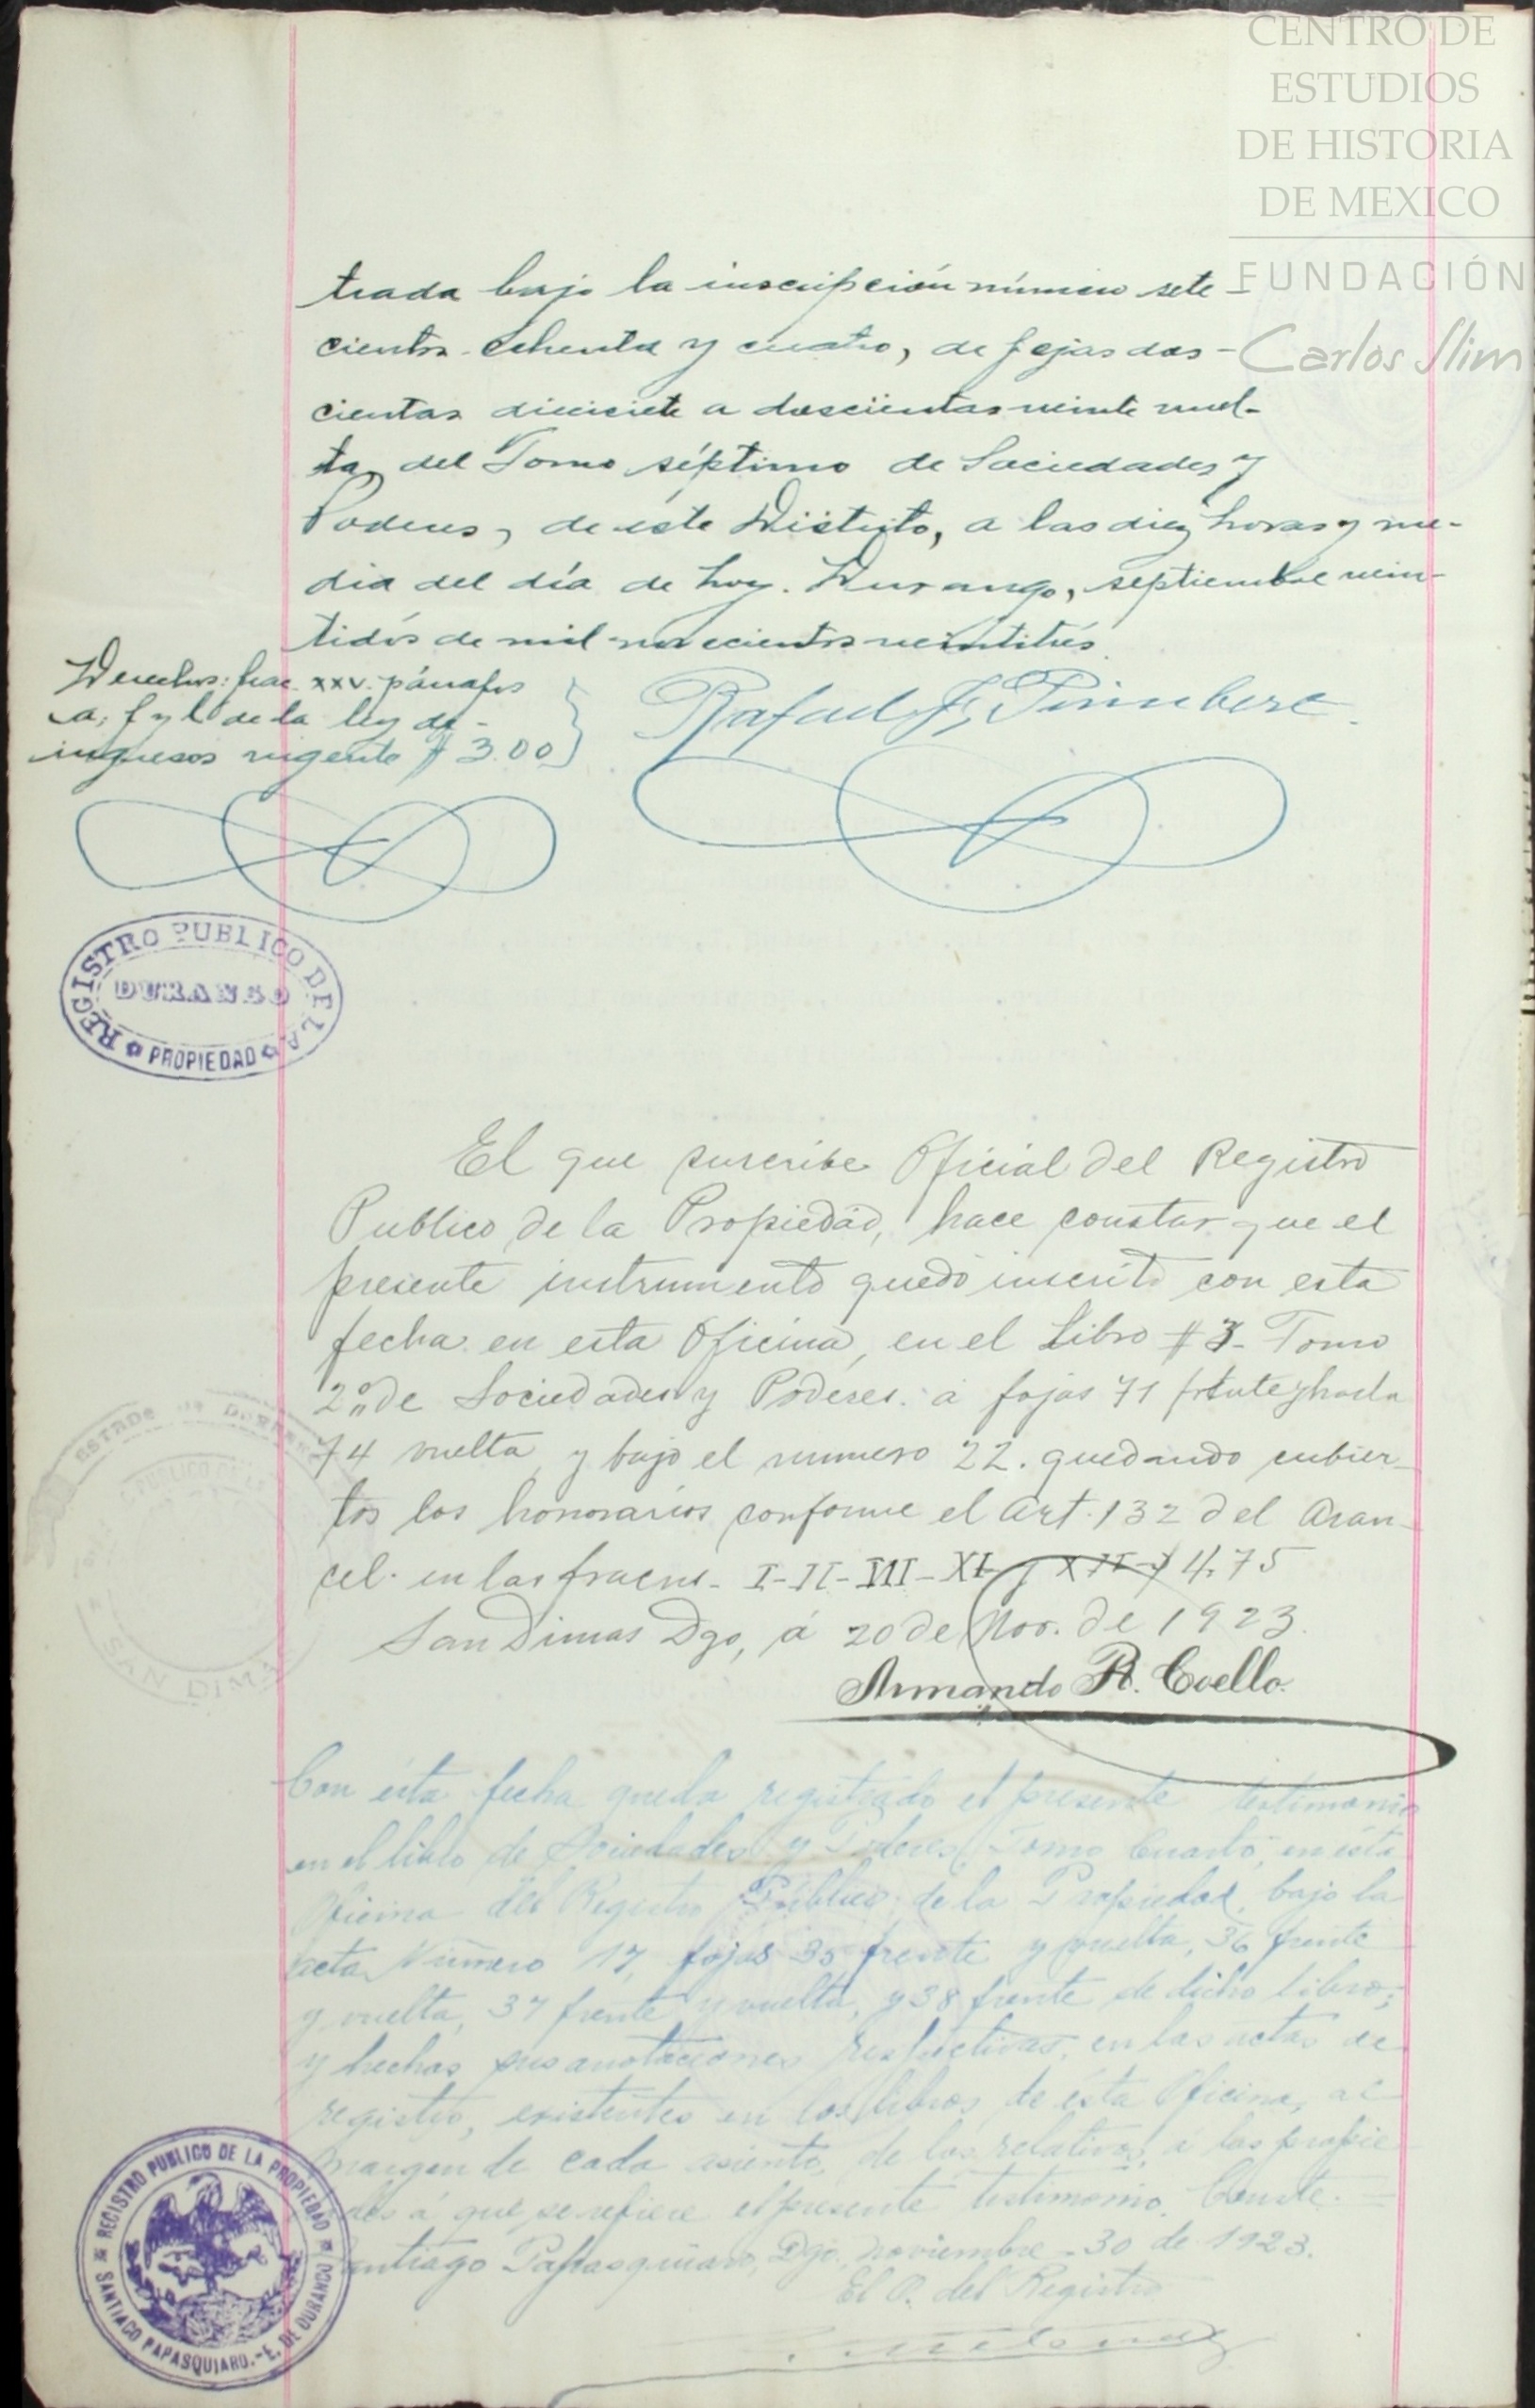 CENTRO DE
ESTUDIOS
DE HISTORIA
DE MEXICO
FUNDACIÓN
Carlos Slim
trada bajo la inscripción número sete-
cientos ochenta y cuatro, de fojas dos-
cientas diecisiete a doscientas veinte vuel-
ta, del Tomo séptimo de Sociedades y
Poderes, de este Distrito, a las diez horas y me-
dia del día de hoy. Durango, septiembre vein-
tidós de mil novecientos veintitrés.
Derechos: frac. XXV. párrafos
a, f y l de la ley de
ingresos vigente $ 3.00
Rafael F. Pimbert.
REGISTRO PUBLICO DE LA
DURANGO
PROPIEDAD
El que suscribe Oficial del Registro
Publico de la Propiedad, hace constar que el
presente instrumento quedó inscrito con esta
fecha en esta Oficina, en el Libro # 3- Tomo
2º de Sociedades y Poderes. a fojas 71 frente hasta
74 vuelta y bajo el numero 22. quedando cubier-
tos los honorarios conforme el Art. 132 del Aran-
cel. en las fraccns- I-II-III-XI y XII- $ 4.75
San Dimas Dgo, á 20 de Nov. de 1923.
Armando R. Coello.
ESTADO DE DURANGO
PUBLICO DE LA
SAN DIMAS
Con ésta fecha queda registrado el presente testimonio
en el libro de Sociedades y Poderes, Tomo Cuarto, en ésta
Oficina del Registro Público de la Propiedad, bajo la
acta Número 17, fojas 35 frente y vuelta, 36 frente
y vuelta, 37 frente y vuelta, y 38 frente de dicho libro;
y hechas sus anotaciones respectivas, en las actas de
registro, existentes en los libros de ésta Oficina, al
margen de cada asiento, de los relativos á las propie-
des á que se refiere el presente testimonio. Conste.=
Santiago Papasquiaro, Dgo, noviembre-30 de 1923.
El O. del Registro
REGISTRO PUBLICO DE LA PROPIEDAD
SANTIAGO PAPASQUIARO.-E. DE DURANGO